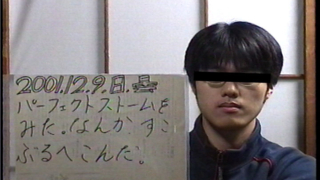 2001.12.9.日.
パーフェクトストームを
みた。なんか すこ
ぶるへこんだ。